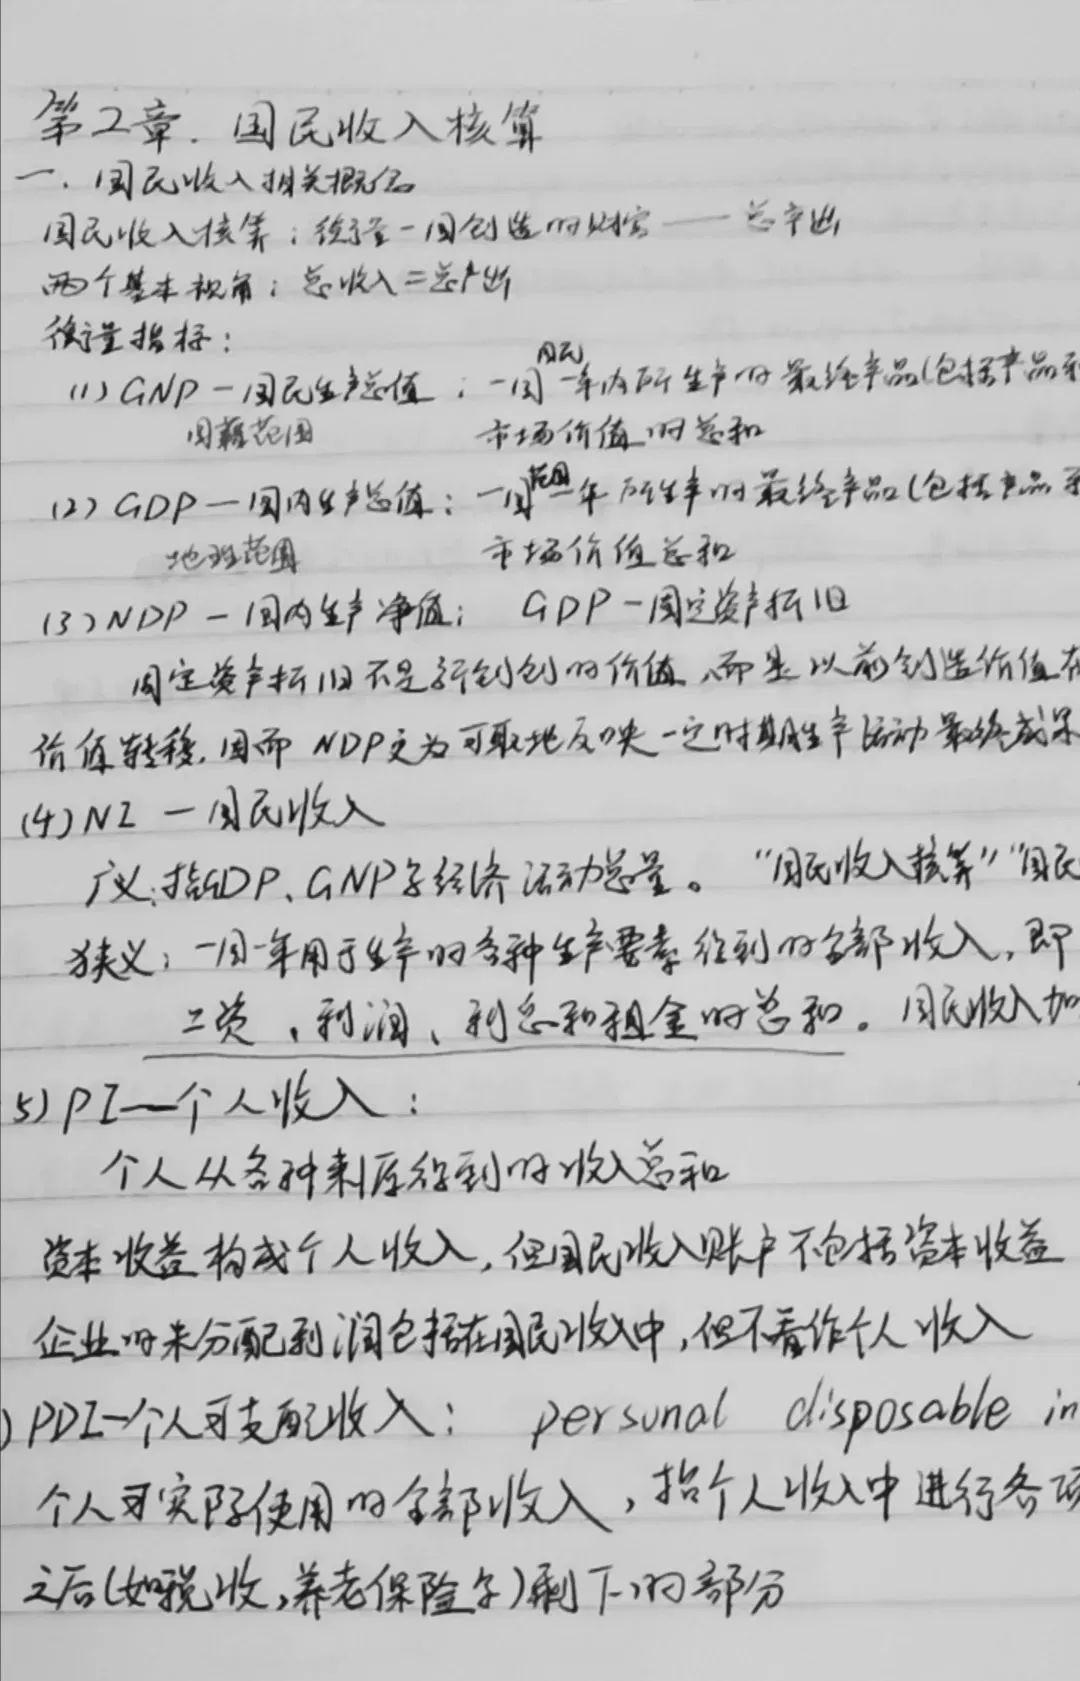 第2章. 国民收入核算
一. 国民收入相关概念
国民收入核算: 衡量一国创造的财富 —— 总产出
两个基本视角: 总收入=总产出
衡量指标:
(1) GNP — 国民生产总值 : 一国国民一年内所生产的最终产品(包括产品和
国籍范围 市场价值的总和
(2) GDP — 国内生产总值: 一国范围一年所生产的最终产品(包括产品
地理范围 市场价值总和
(3) NDP — 国内生产净值; GDP — 固定资产折旧
固定资产折旧不是新创的价值,而是以前创造价值在
价值转移,因而 NDP更为可取地反映一定时期生产活动最终成果
(4) NI — 国民收入
广义:指GDP、GNP等经济活动总量。 “国民收入核算”“国民
狭义: 一国一年用于生产的各种生产要素得到的全部收入,即
工资、利润、利息和租金的总和。国民收入加
5) PI — 个人收入:
个人从各种来源得到的收入总和
资本收益构成个人收入,但国民收入账户不包括资本收益
企业的未分配利润包括在国民收入中,但不看作个人收入
) PDI — 个人可支配收入: personal disposable in
个人可实际使用的全部收入,指个人收入中进行各项
之后(如税收,养老保险等)剩下的部分